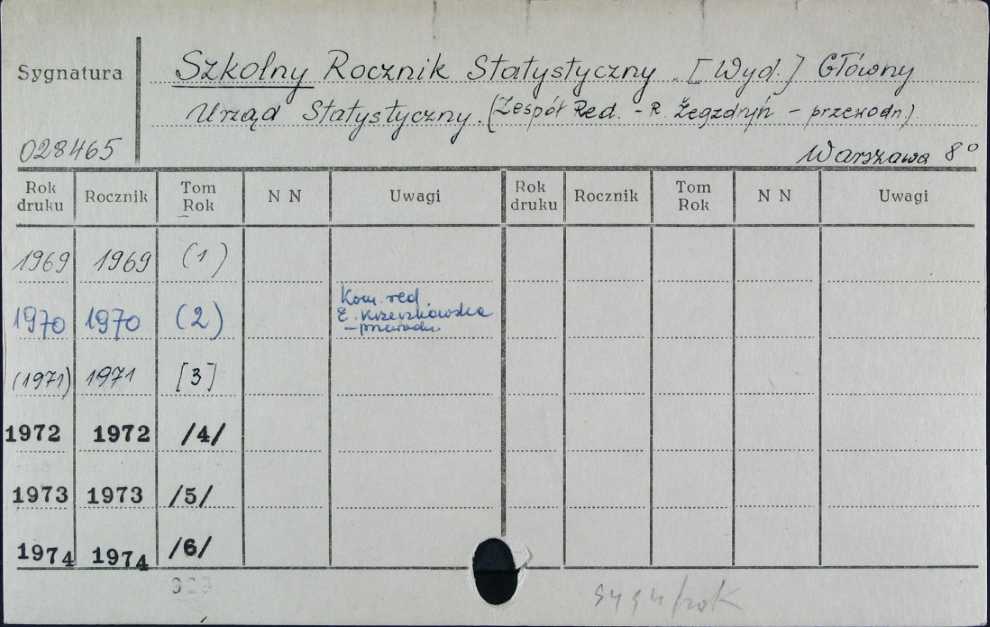 Sygnatura
Szkolny Rocznik Statystyczny. [Wyd.] Główny
Urząd Statystyczny. (Zespół Red. - R. Żegzdryń - przewodn.)
028465
Warszawa 8°
Rok druku Rocznik Tom Rok N N Uwagi Rok druku Rocznik Tom Rok N N Uwagi
1969 1969 (1)
1970 1970 (2) Kom. red
E. Krzeczkowska
- przewodn.
(1971) 1971 [3]
1972 1972 /4/
1973 1973 /5/
1974 1974 /6/
sygn/rok